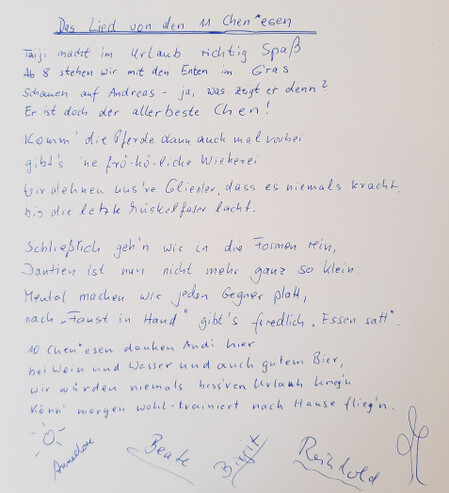 Das Lied von den 11 Chen*esen
Taiji macht im Urlaub richtig Spaß
Ab 8 stehen wir mit den Enten im Gras
Schauen auf Andreas - ja, was zeigt er denn?
Er ist doch der allerbeste Chen!
Komm' die Pferde dann auch mal vorbei
gibt's 'ne frö-hö-liche Wieherei
Wir dehnen uns're Glieder, dass es niemals kracht,
bis die letzte Muskelfaser lacht.
Schließlich geh'n wir in die Formen rein,
Dantien ist nun nicht mehr ganz so klein.
Mental machen wir jeden Gegner platt,
nach "Faust in Hand" gibt's friedlich "Essen satt".
10 Chen*esen danken Andi hier
bei Wein und Wasser und auch gutem Bier,
wir würden niemals bess'ren Urlaub krieg'n
Könn' morgen wohl-trainiert nach Hause flieg'n.
Annelore Beate Birgit Reinhold